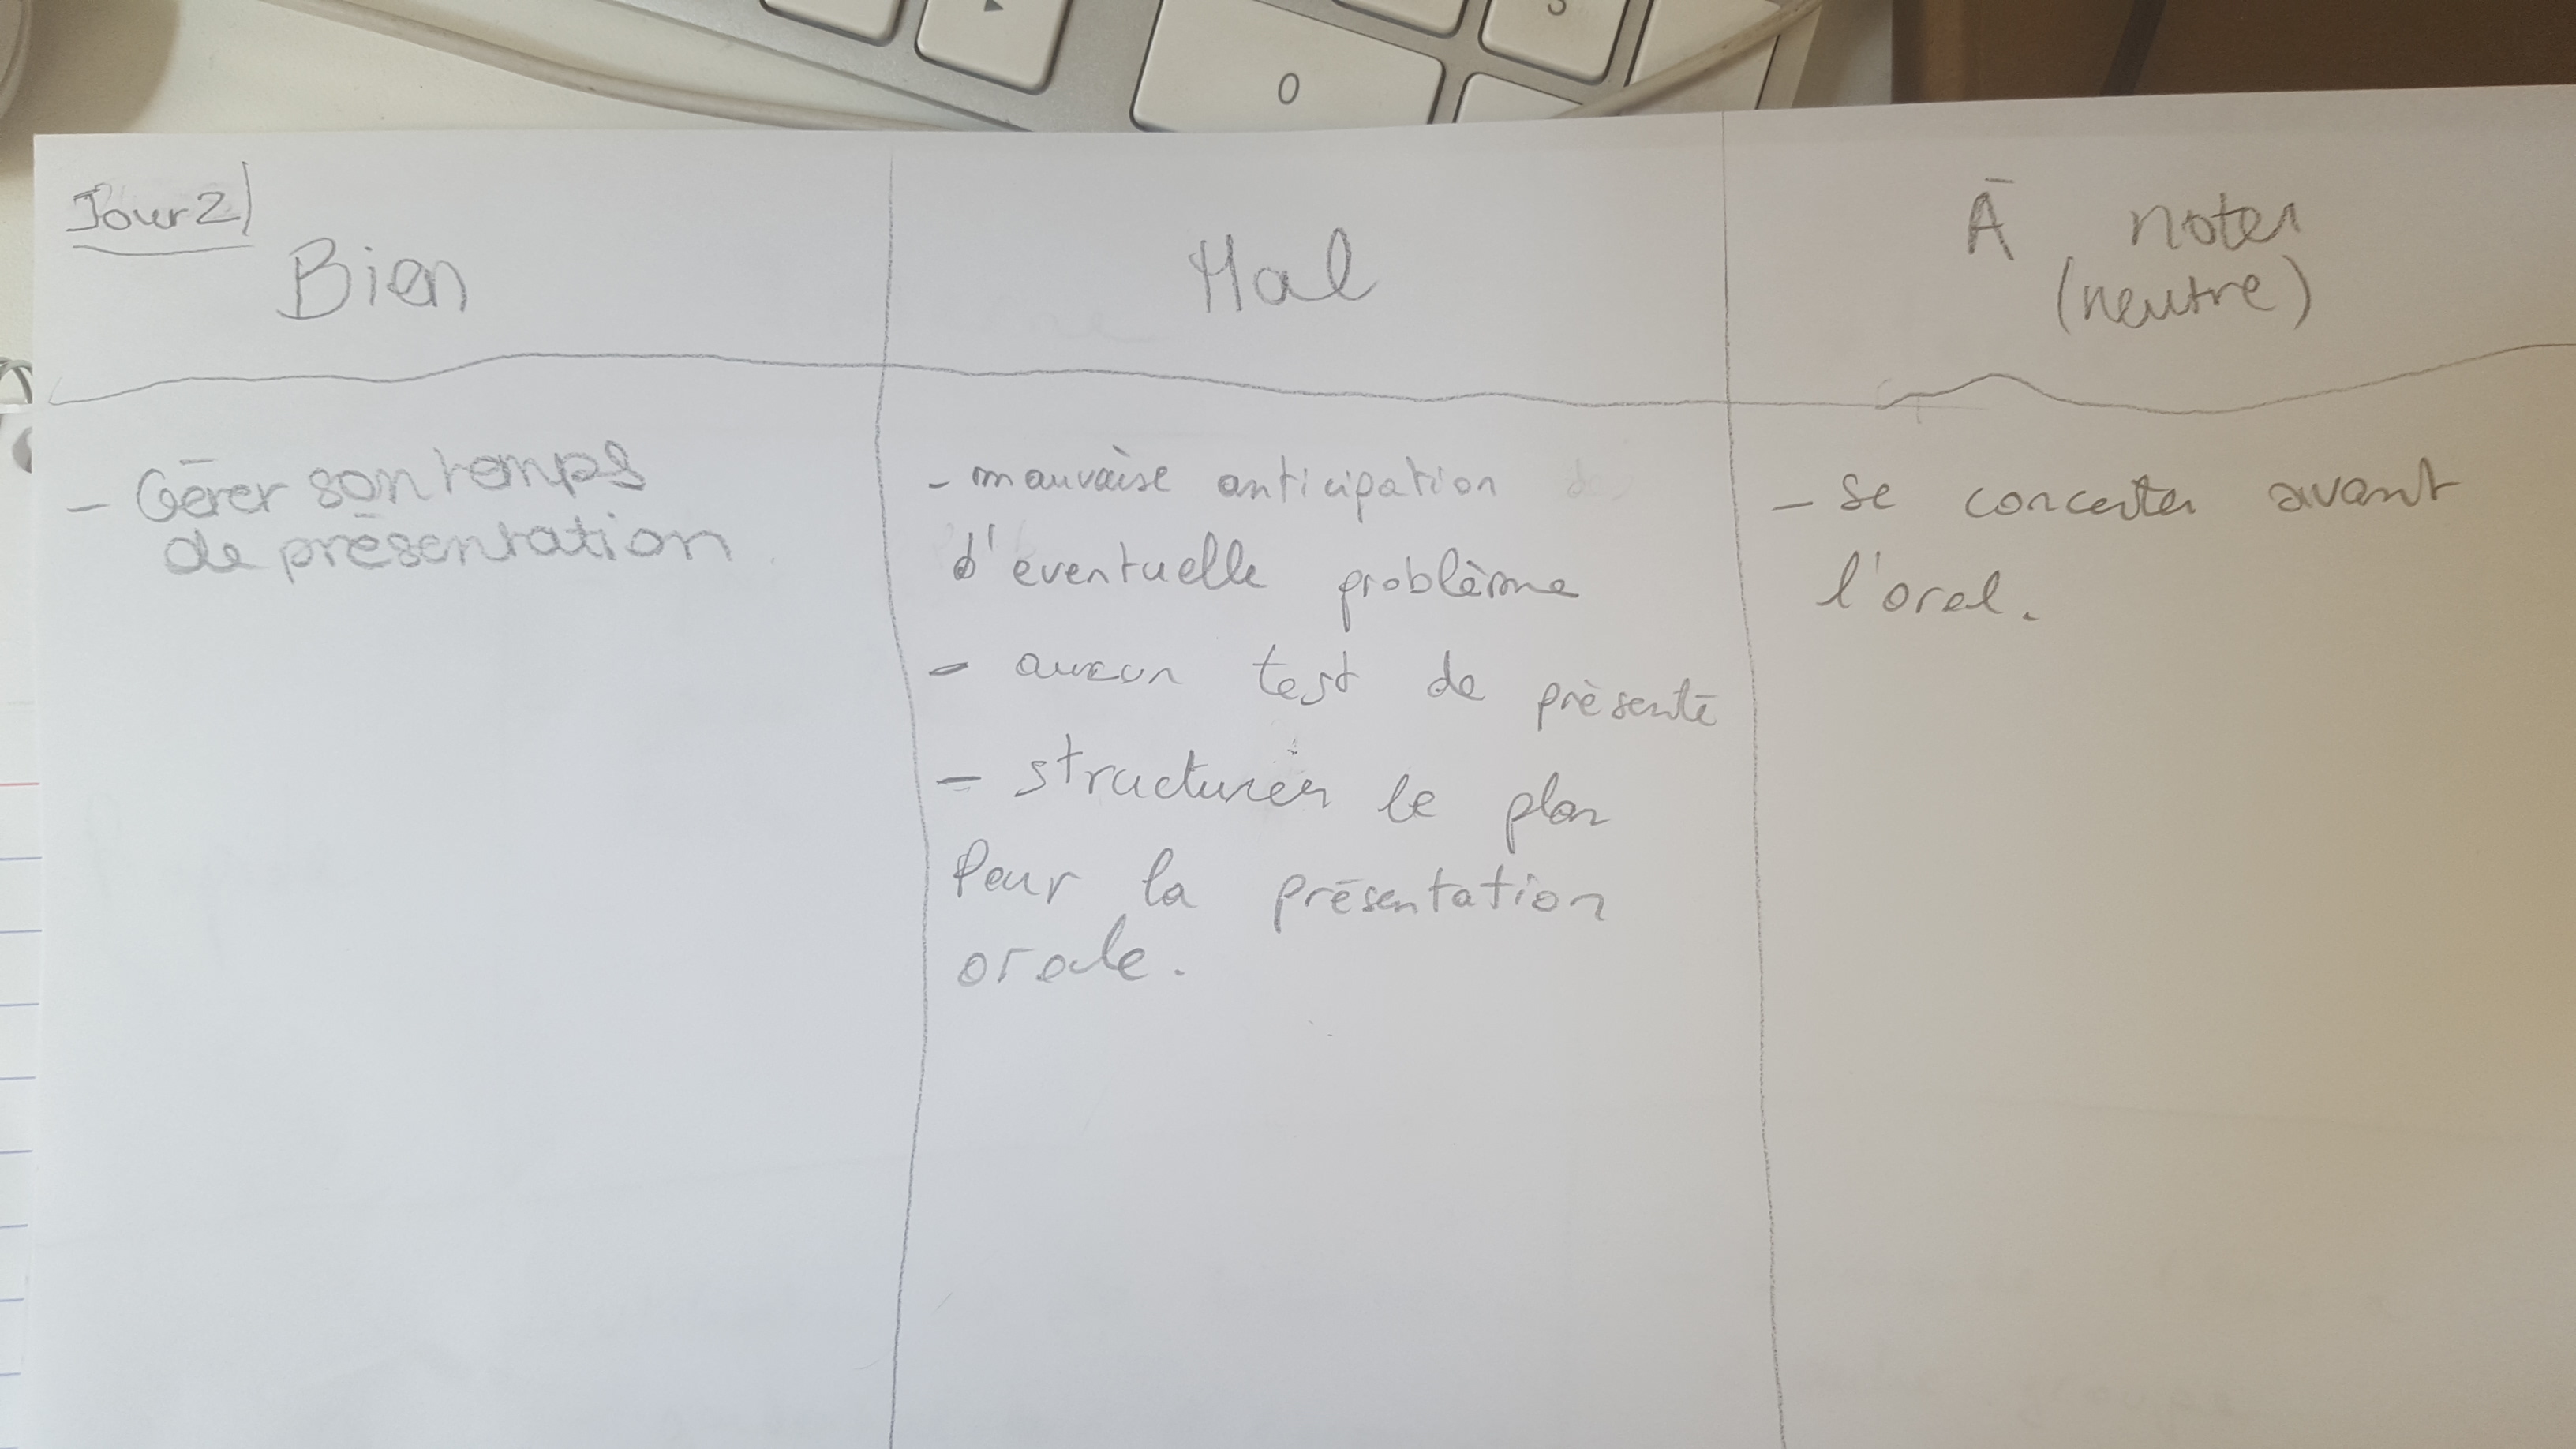 Jour 2
Bien
Mal
À noter
(neutre)
- Gérer son temps
de présentation
- mauvaise anticipation
d'éventuelle problème
- aucun test de présenté
- structurer le plan
Pour la présentation
orale.
- se concerter avant
l'oral.
0